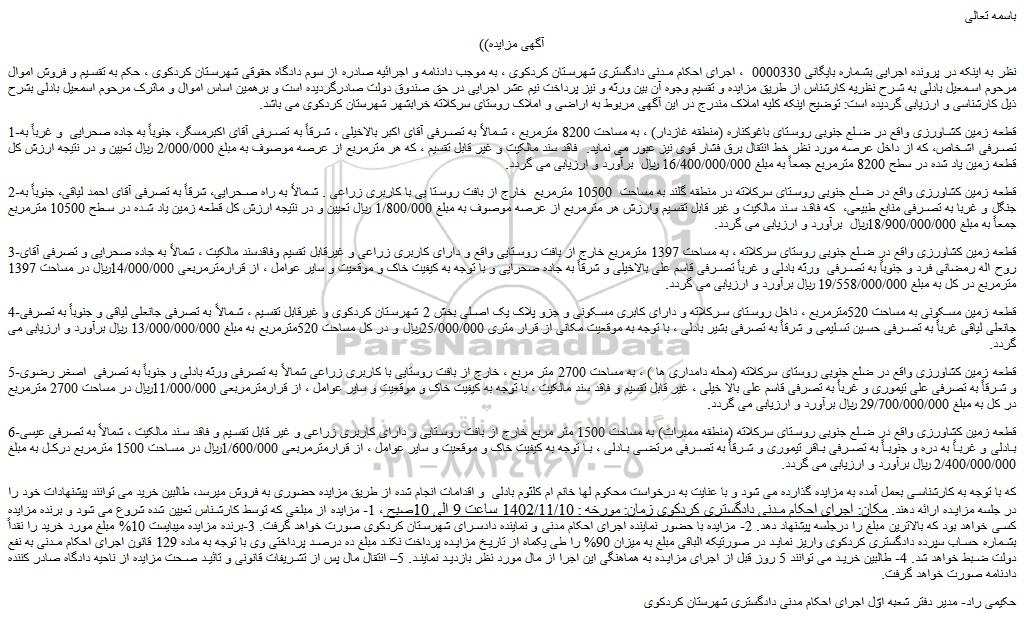 باسمه تعالی
آگهی مزایده))
نظر به اینکه در پرونده اجرایی بشماره بایگانی 0000330 ، اجرای احکام مدنی دادگستری شهرستان کردکوی ، به موجب دادنامه و اجرائیه صادره از سوم دادگاه حقوقی شهرستان کردکوی ، حکم به تقسیم و فروش اموال
مرحوم اسمعیل بادلی به شرح نظریه کارشناس از طریق مزایده و تقسیم وجوه آن بین ورثه و نیز پرداخت نیم عشر اجرایی در حق صندوق دولت صادرگردیده است و برهمین اساس اموال و ماترک مرحوم اسمعیل بادلی بشرح
ذیل کارشناسی و ارزیابی گردیده است: توضیح اینکه کلیه املاک مندرج در این آگهی مربوط به اراضی و املاک روستای سرکلاته خرابشهر شهرستان کردکوی می باشد.
قطعه زمین کشاورزی واقع در ضلع جنوبی روستای باغوکناره (منطقه غازدار) ، به مساحت 8200 مترمربع ، شمالاً به تصرفی آقای اکبر بالاخیلی ، شرقاً به تصرفی آقای اکبرمسگر، جنوباً به جاده صحرایی و غرباً به-1
تصرفی اشخاص، که از داخل عرصه مورد نظر خط انتقال برق فشار قوی نیز عبور می نماید. فاقد سند مالکیت و غیر قابل تقسیم ، که هر مترمربع از عرصه موصوف به مبلغ 2/000/000 ریال تعیین و در نتیجه ارزش کل
قطعه زمین یاد شده در سطح 8200 مترمربع جمعاً به مبلغ 16/400/000/000 ریال برآورد و ارزیابی می گردد.
قطعه زمین کشاورزی واقع در ضلع جنوبی روستای سرکلاته در منطقه گلند به مساحت 10500 مترمربع خارج از بافت روستا یی با کاربری زراعی . شمالاً به راه صحرایی، شرقاً به تصرفی آقای احمد لیاقی، جنوباً به-2
جنگل و غربا به تصرفی منابع طبیعی، که فاقد سند مالکیت و غیر قابل تقسیم وارزش هر مترمربع از عرصه موصوف به مبلغ 1/800/000 ریال تعیین و در نتیجه ارزش کل قطعه زمین یاد شده در سطح 10500 مترمربع
جمعاً به مبلغ 18/900/000/000ریال برآورد و ارزیابی می گردد.
قطعه زمین کشاورزی واقع در ضلع جنوبی روستای سرکلاته ، به مساحت 1397 مترمربع خارج از بافت روستایی واقع و دارای کاربری زراعی و غیرقابل تقسیم وفاقدسند مالکیت ، شمالاً به جاده صحرایی و تصرفی آقای-3
روح اله رمضانی فرد و جنوباً به تصرفی ورثه بادلی و غرباً تصرفی قاسم علی بالاخیلی و شرقاً به جاده صحرایی و با توجه به کیفیت خاک و موقعیت و سایر عوامل ، از قرارمترمربعی 14/000/000ریال در مساحت 1397
مترمربع در کل به مبلغ 19/558/000/000 ریال برآورد و ارزیابی می گردد.
قطعه زمین مسکونی به مساحت 520مترمربع ، داخل روستای سرکلاته و دارای کابری مسکونی و جزو پلاک یک اصلی بخش 2 شهرستان کردکوی و غیرقابل تقسیم ، شمالاً به تصرفی جانعلی لیاقی و جنوباً به تصرفی-4
جانعلی لیاقی غرباً به تصرفی حسین تسلیمی و شرقاً به تصرفی بشیر بادلی ، با توجه به موقعیت مکانی از قرار متری 25/000/000ریال و در کل مساحت 520مترمربع به مبلغ 13/000/000/000 ریال برآورد و ارزیابی می
گردد.
قطعه زمین کشاورزی واقع در ضلع جنوبی روستای سرکلاته (محله دامداری ها ) ، به مساحت 2700 متر مربع ، خارج از بافت روستایی با کاربری زراعی شمالاً به تصرفی ورثه بادلی و جنوباً به تصرفی اصغر رضوی-5
و شرقاً به تصرفی علی تیموری و غرباً به تصرفی قاسم علی بالا خیلی ، غیر قابل تقسیم و فاقد سند مالکیت ، با توجه به کیفیت خاک و موقعیت و سایر عوامل ، از قرارمترمربعی 11/000/000ریال در مساحت 2700 مترمربع
در کل به مبلغ 29/700/000/000 ریال برآورد و ارزیابی می گردد.
قطعه زمین کشاورزی واقع در ضلع جنوبی روستای سرکلاته (منطقه ممبرات) به مساحت 1500 متر مربع خارج از بافت روستایی و دارای کاربری زراعی و غیر قابل تقسیم و فاقد سند مالکیت ، شمالاً به تصرفی عیسی-6
بادلی و غرباً به دره و جنوباً به تصرفی باقر تیموری و شرقاً به تصرفی مرتضی بادلی ، با توجه به کیفیت خاک و موقعیت و سایر عوامل ، از قرارمترمربعی 1/600/000ریال در مساحت 1500 مترمربع درکل به مبلغ
2/400/000/000 ریال برآورد و ارزیابی می گردد.
که با توجه به کارشناسی بعمل آمده به مزایده گذارده می شود و با عنایت به درخواست محکوم لها خانم ام کلثوم بادلی و اقدامات انجام شده از طریق مزایده حضوری به فروش میرسد، طالبین خرید می توانند پیشنهادات خود را
در جلسه مزایده ارائه دهند. مکان: اجرای احکام مدنی دادگستری کردکوی زمان: مورخه : 1402/11/10 ساعت 9 الی 10صبح، 1- مزایده از مبلغی که توسط کارشناس تعیین شده شروع می شود و برنده مزایده
کسی خواهد بود که بالاترین مبلغ را درجلسه پیشنهاد دهد. 2- مزایده با حضور نماینده اجرای احکام مدنی و نماینده دادسرای شهرستان کردکوی صورت خواهد گرفت. 3-برنده مزایده میبایست 10% مبلغ مورد خرید را نقداً
بشماره حساب سپرده دادگستری کردکوی واریز نماید در صورتیکه الباقی مبلغ به میزان 90% را طی یکماه از تاریخ مزایده پرداخت نکند مبلغ ده درصد پرداختی وی با توجه به ماده 129 قانون اجرای احکام مدنی به نفع
دولت ضبط خواهد شد. 4- طالبین خرید می توانند 5 روز قبل از اجرای مزایده به هماهنگی این اجرا از مال مورد نظر بازدید نمایند. 5– انتقال مال پس از تشریفات قانونی و تائید صحت مزایده از ناحیه دادگاه صادر کننده
دادنامه صورت خواهد گرفت.
حکیمی راد- مدیر دفتر شعبه اوّل اجرای احکام مدنی دادگستری شهرستان کردکوی
ParsNamadData
۰۲۱-۸۸۳۴۹۶۷۰-۵